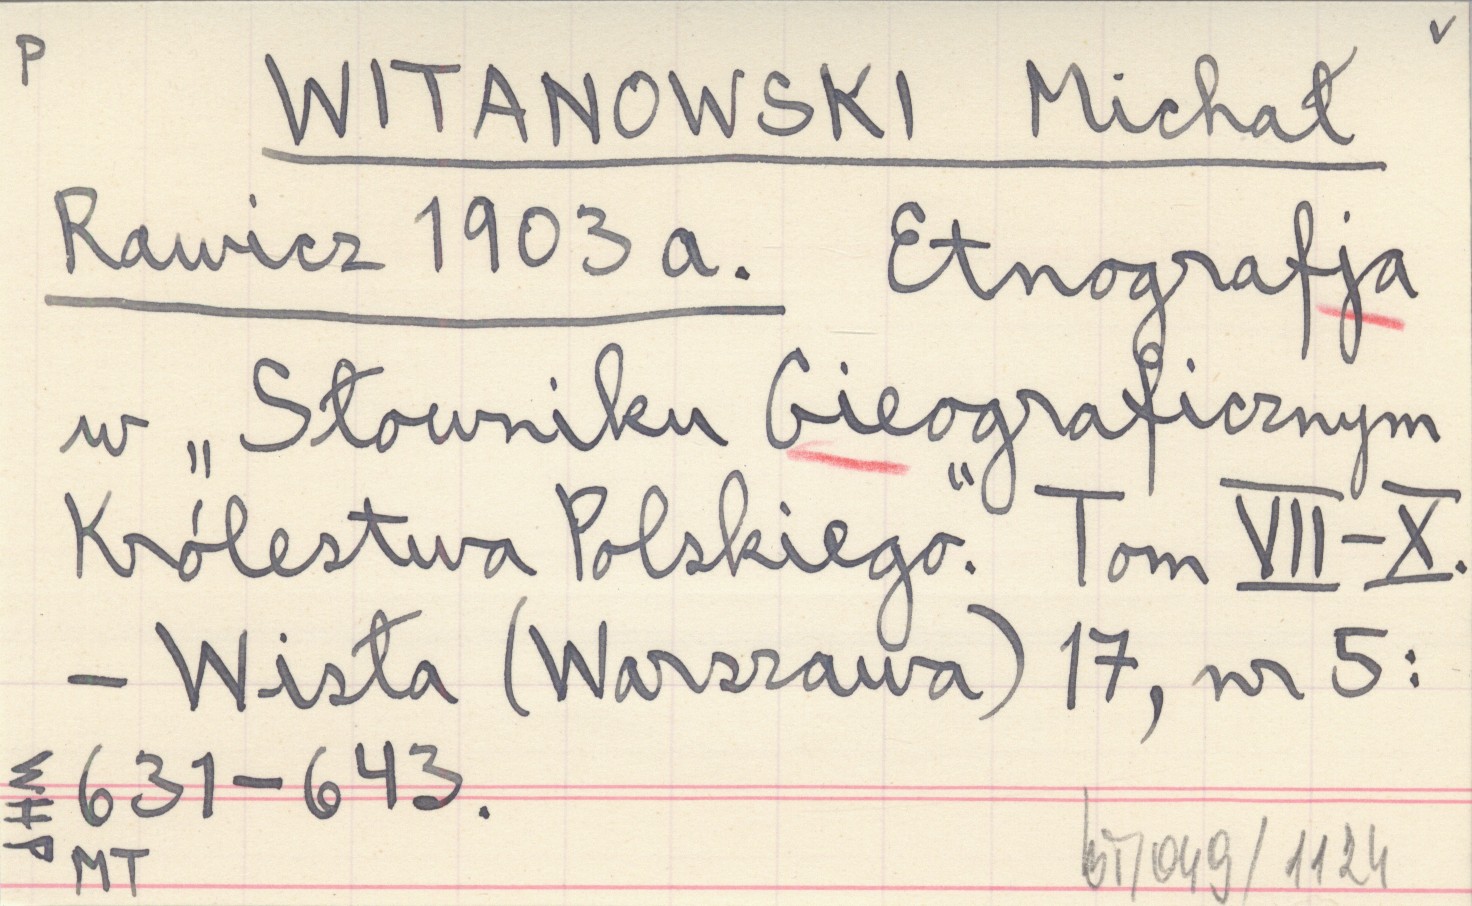 P
v
WITANOWSKI Michał
Rawicz 1903 a. Etnografja
w „Słowniku Gieograficznym
Królestwa Polskiego." Tom VII-X.
- Wisła (Warszawa) 17, nr 5:
631-643.
WHP
MT
/049/1124